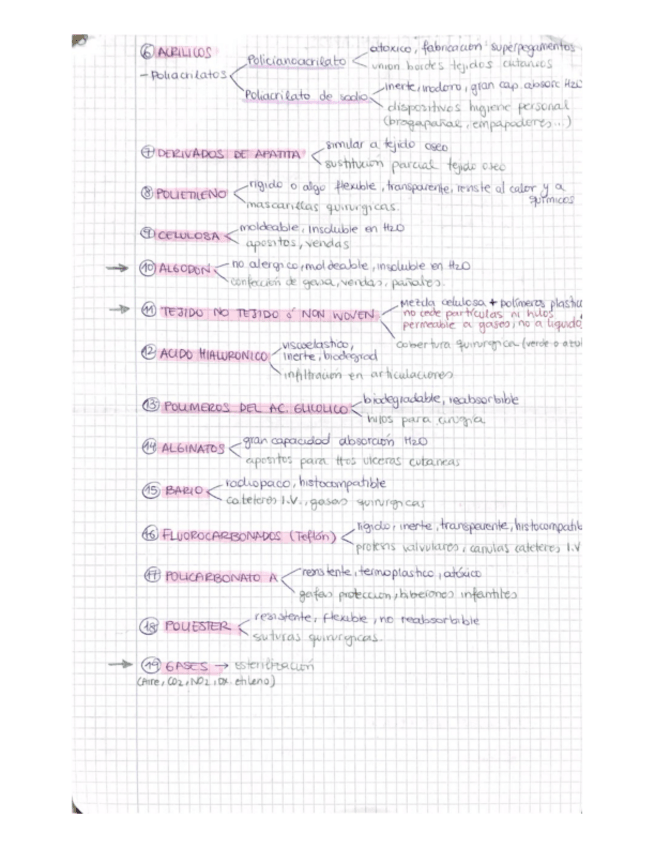 ⑥ ACRILICOS
- Poliacrilatos
Policianoacrilato
atoxico, fabricación superpegamentos
union bordes tejidos cutaneos
Poliacrilato de sodio
inerte, inodoro, gran cap. absorc H2O
dispositivos higiene personal
(bragapañal, empapadores...)
⑦ DERIVADOS DE APATITA
similar a tejido oseo
sustitución parcial tejido oseo
⑧ POLIETILENO
rigido o algo flexible, transparente, resiste al calor y a
quimicos
mascarillas quirurgicas.
⑨ CELULOSA
moldeable, insoluble en H2O
apositos, vendas
→ ⑩ ALGODON
no alergico, moldeable, insoluble en H2O
confección de gasa, vendas, pañales.
→ ⑪ TEJIDO NO TEJIDO ó NON WOVEN
Mezcla celulosa + polímeros plastico
no cede partículas ni hilos
permeable a gases, no a liquido
cobertura quirurgica (verde o azul
⑫ ACIDO HIALURONICO
viscoelastico,
inerte, biodegrad
infiltración en articulaciones
⑬ POLIMEROS DEL AC. GLICOLICO
biodegradable, reabsorbible
hilos para cirugia
⑭ ALGINATOS
gran capacidad absorción H2O
apositos para ttos ulceras cutaneas
⑮ BARIO
radiopaco, histocompatible
cateteres I.V., gasas quirurgicas
⑯ FLUOROCARBONADOS (Teflón)
rigido, inerte, transparente, histocompatib
protesis valvulares, canulas cateteres I.V
⑰ POLICARBONATO A
resistente, termoplastico, atóxico
gafas protección, biberones infantiles
⑱ POLIESTER
resistente, flexible, no reabsorbible
suturas quirurgicas.
→ ⑲ GASES → esterilización
(Aire, CO2, NO2, ox. etileno)